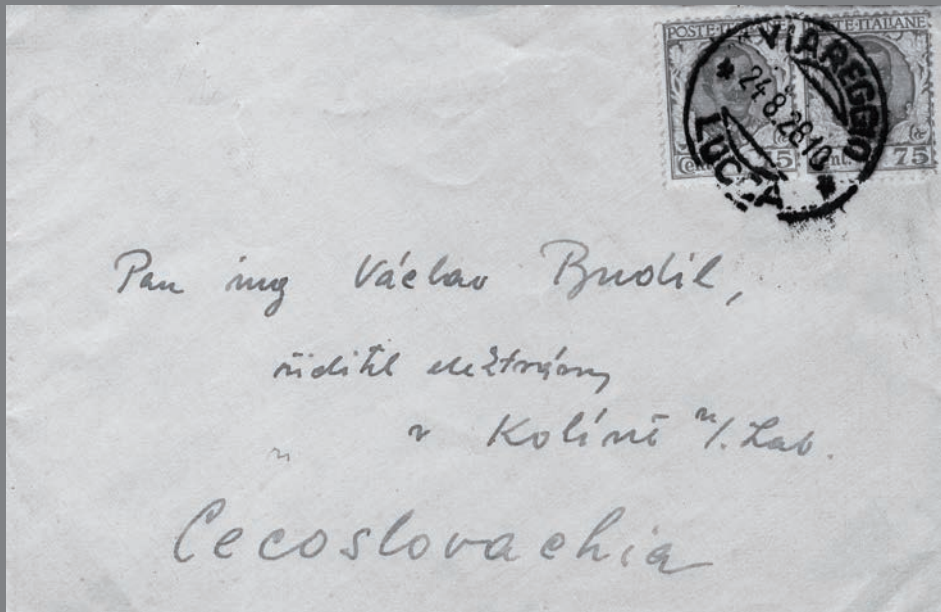 POSTE ITALIANE
VIAREGGIO
24.8.28.10
LUCCA
75
Cent. 75
Pan ing Václav Budil,
ředitel elektrárny
v Kolíně n/. Lab.
Cecoslovachia